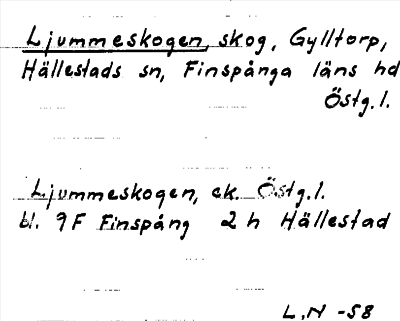 Ljummeskogen, skog, Gylltorp,
Hällestads sn, Finspånga läns hd
Östg.l.
Ljummeskogen, ek. Östg.l.
bl. 9F Finspång 2h Hällestad
L.N -58